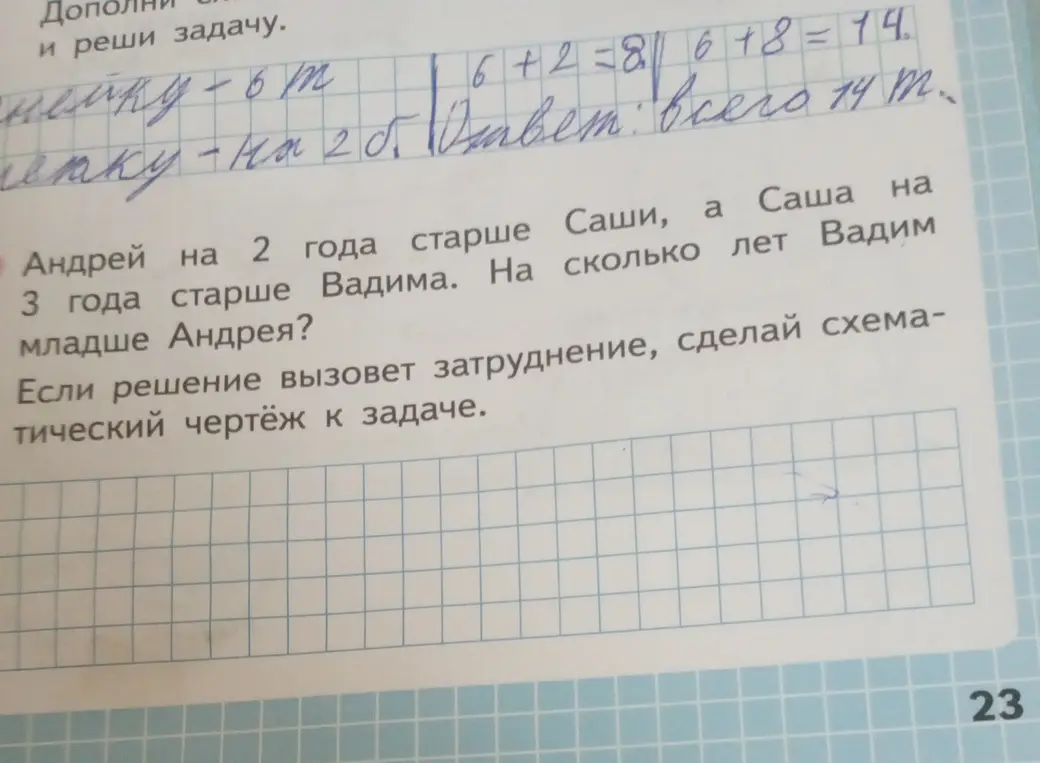 Дополни
и реши задачу.
нейку - 6 т | 6 + 2 = 8. || 6 + 8 = 14.
летку - на 2 б. | Ответ: всего 14 т.
Андрей на 2 года старше Саши, а Саша на
3 года старше Вадима. На сколько лет Вадим
младше Андрея?
Если решение вызовет затруднение, сделай схема-
тический чертёж к задаче.
23